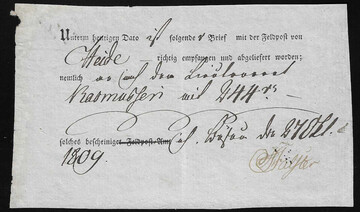 Unterm heutigen Dato ist folgende r Brief mit der Feldpost von
Heide richtig empfangen und abgeliefert worden;
nemlich an den Lieutenant
Rasmussen mit 244
solches bescheiniget Feldpost-Amt d. 27 Oct.
1809.